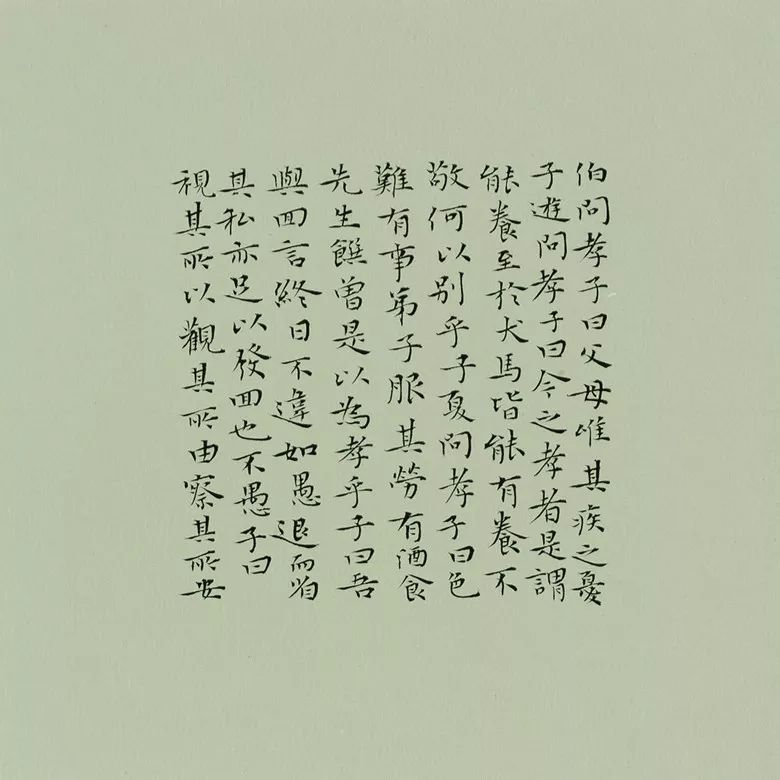 伯問孝子曰父母唯其疾之憂
子遊問孝子曰今之孝者是謂
能養至於犬馬皆能有養不
敬何以別乎子夏問孝子曰色
難有事弟子服其勞有酒食
先生饌曾是以為孝乎子曰吾
與回言終日不違如愚退而省
其私亦足以發回也不愚子曰
視其所以觀其所由察其所安